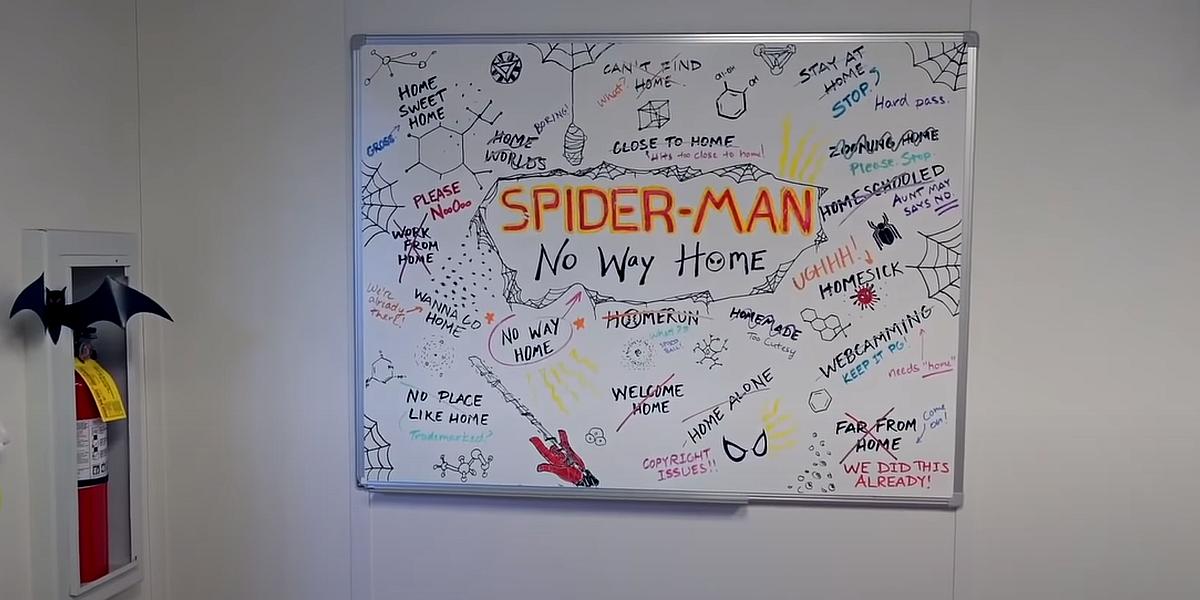 HOME
SWEET
HOME
GROSS
HOME
WORLDS
BORING!
CAN'T FIND
HOME
What?
CLOSE TO HOME
Hits too close to home!
STAY AT
HOME
STOP.
Hard pass.
ZOOMING HOME
Please. Stop.
HOMESCHOOLED
AUNT MAY
SAYS NO.
PLEASE
NooOoo
SPIDER-MAN
No Way HOME
WORK
FROM
HOME
UGHHH!
HOMESICK
We're
already
there!
WANNA GO
HOME
NO WAY
HOME
HOOMERUN
What?
SPIDER
BALL!
HOMEMADE
Too Cutesy
WEBCAMMING
KEEP IT PG!
needs "home"
NO PLACE
LIKE HOME
Trademarked?
WELCOME
HOME
HOME ALONE
COPYRIGHT
ISSUES!!
FAR FROM
HOME
Come
on!
WE DID THIS
ALREADY!